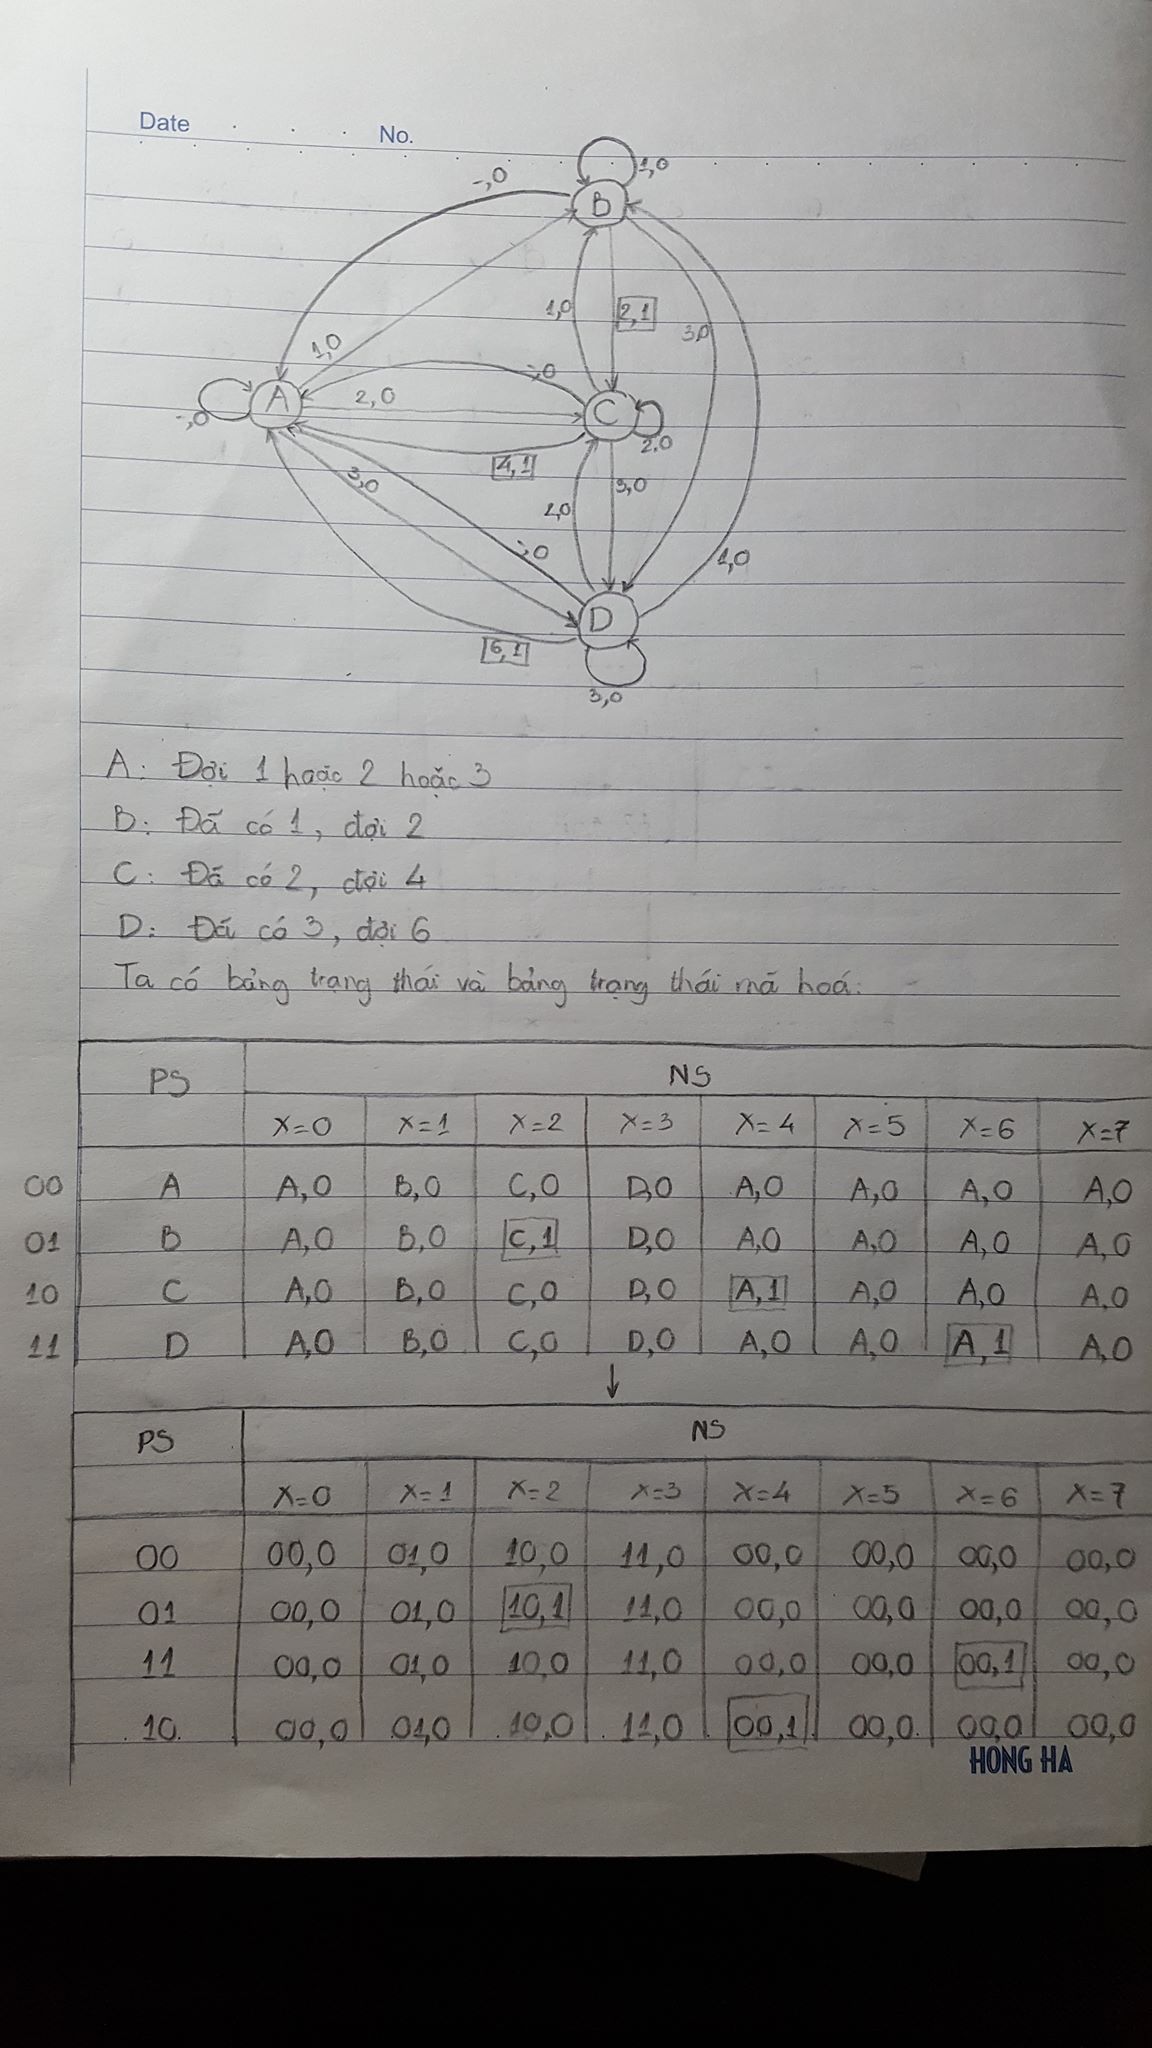 Date
No.
-,0
1,0
B
1,0
2,1
3,0
1,0
-,0
A
2,0
C
-,0
2,0
4,1
3,0
3,0
2,0
-,0
1,0
D
6,1
3,0
A: Đợi 1 hoặc 2 hoặc 3
B: Đã có 1, đợi 2
C: Đã có 2, đợi 4
D: Đã có 3, đợi 6
Ta có bảng trạng thái và bảng trạng thái mã hoá:
PS NS
X=0 X=1 X=2 X=3 X=4 X=5 X=6 X=7
00 A A,0 B,0 C,0 D,0 A,0 A,0 A,0 A,0
01 B A,0 B,0 C,1 D,0 A,0 A,0 A,0 A,0
10 C A,0 B,0 C,0 D,0 A,1 A,0 A,0 A,0
11 D A,0 B,0 C,0 D,0 A,0 A,0 A,1 A,0
PS NS
X=0 X=1 X=2 X=3 X=4 X=5 X=6 X=7
00 00,0 01,0 10,0 11,0 00,0 00,0 00,0 00,0
01 00,0 01,0 10,1 11,0 00,0 00,0 00,0 00,0
11 00,0 01,0 10,0 11,0 00,0 00,0 00,1 00,0
10 00,0 01,0 10,0 11,0 00,1 00,0 00,0 00,0
HONG HA